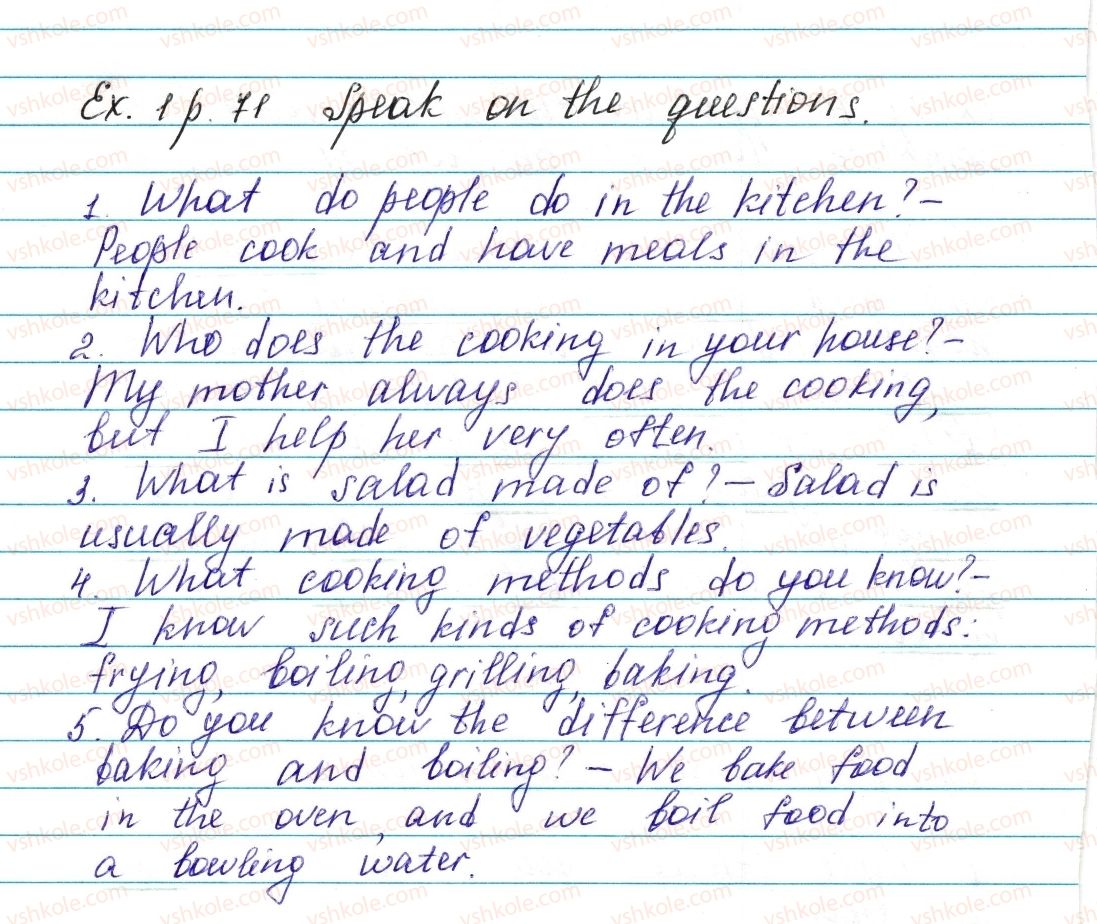 Ex. 1 p. 71 Speak on the questions.
1. What do people do in the kitchen? –
People cook and have meals in the
kitchen.
2. Who does the cooking in your house? –
My mother always does the cooking,
but I help her very often.
3. What is salad made of? – Salad is
usually made of vegetables.
4. What cooking methods do you know? –
I know such kinds of cooking methods:
frying, boiling, grilling, baking.
5. Do you know the difference between
baking and boiling? – We bake food
in the oven, and we boil food into
a bowling water.